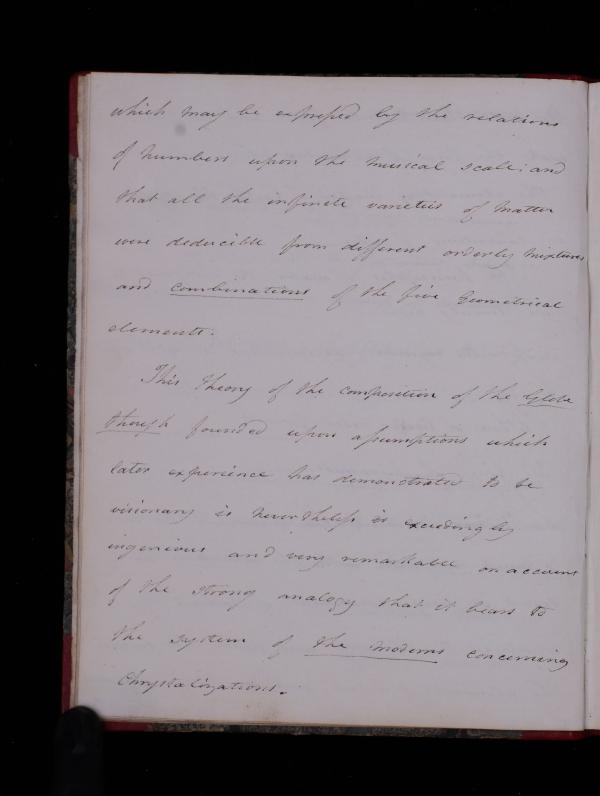 which may be expressed by the relations
of numbers upon the musical scale; and
that all the infinite varieties of Matter
were deducible from different orderly mixtures
and combinations of the five Geometrical
elements.
This theory of the composition of the Globe
though founded upon assumptions which
later experience has demonstrated to be
visionary is nevertheless is exceedingly
ingenious and very remarkable on account
of the strong analogy that it bears to
the system of the moderns concerning
Chrystalizations.